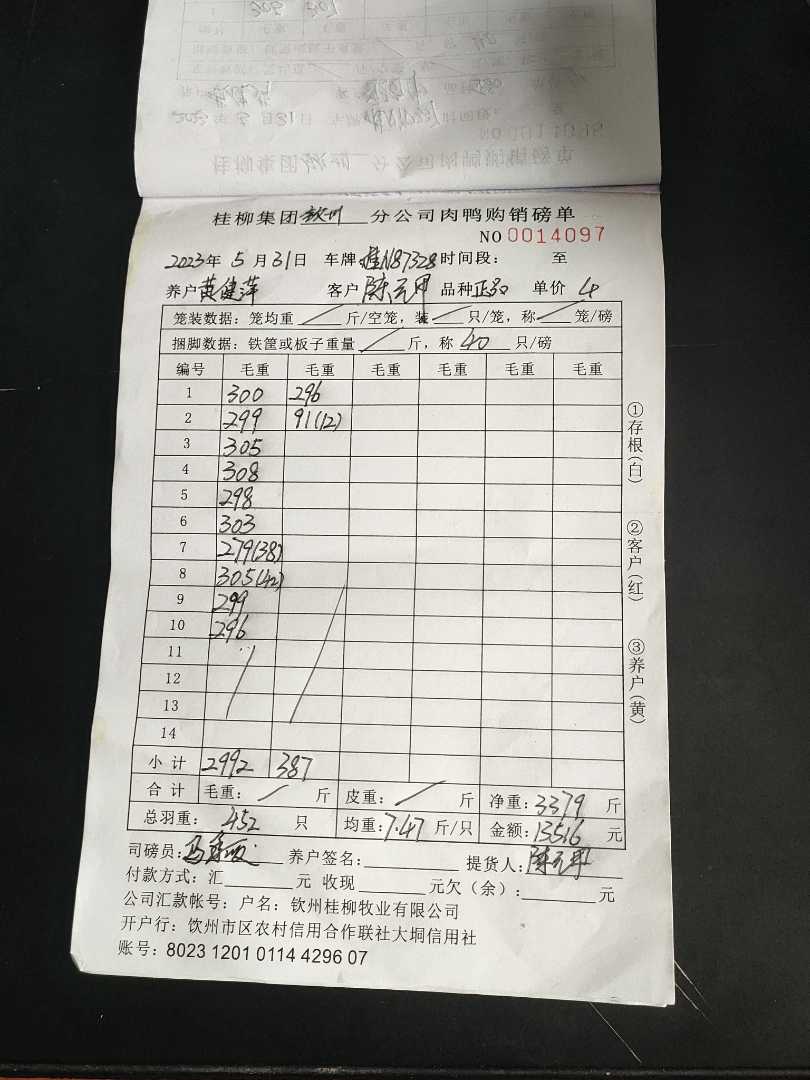 桂柳集团钦州分公司肉鸭购销磅单
NO 0014097
2023年 5月31日 车牌:桂N87328时间段: 至
养户黄健萍 客户 品种正品 单价 4
笼装数据:笼均重 / 斤/空笼,装 / 只/笼,称 / 笼/磅
捆脚数据:铁筐或板子重量 / 斤,称 40 只/磅
编号 毛重 毛重 毛重 毛重 毛重 毛重
1 300 296
2 299 91(12)
3 305
4 308
5 298
6 303
7 279(38)
8 305(42)
9 299
10 296
11
12
13
14
小 计 2992 387
合 计 毛重: / 斤 皮重: / 斤 净重:3379 斤
总羽重: 452 只 均重:7.47 斤/只 金额:13516 元
司磅员: 养户签名: 提货人:
付款方式:汇 元 收现 元欠(余): 元
公司汇款帐号:户名:钦州桂柳牧业有限公司
开户行:饮州市区农村信用合作联社大垌信用社
账号:8023 1201 0114 4296 07
①存根(白)
②客户(红)
③养户(黄)